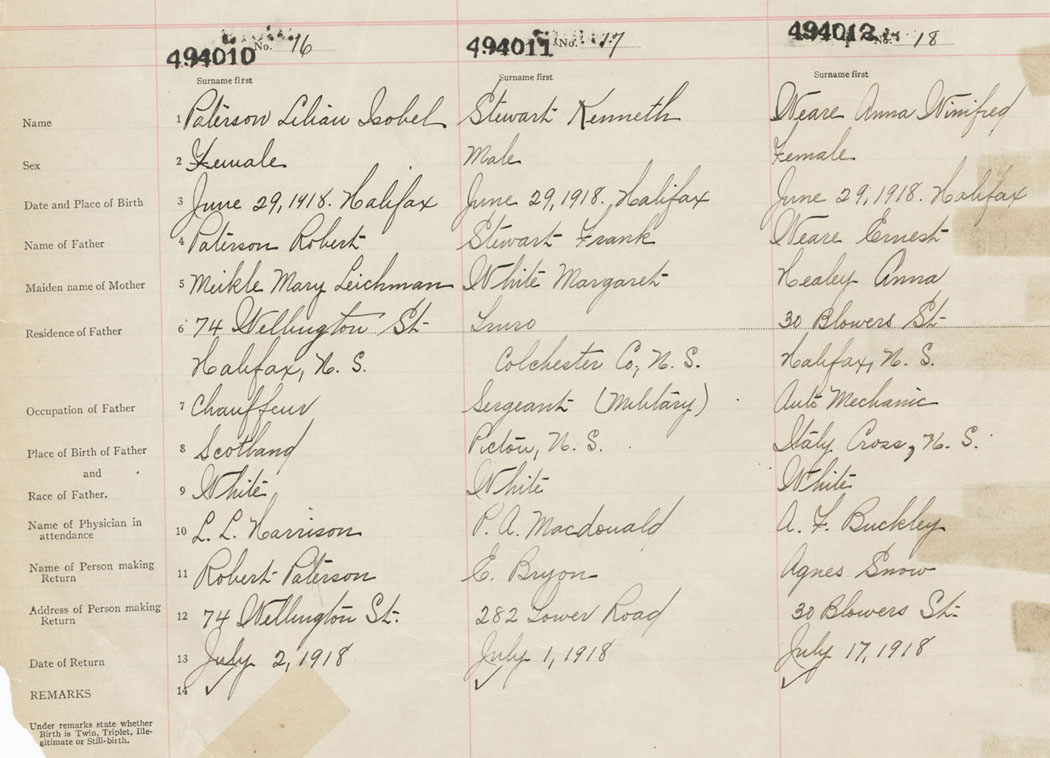 494010 No. 16 494011 No. 17 494012 No. 18
Surname first Surname first Surname first
Name 1 Paterson Lilian Isobel Stewart Kenneth Weare Anna Winifred
Sex 2 Female Male Female
Date and Place of Birth 3 June 29, 1918. Halifax June 29, 1918. Halifax June 29, 1918. Halifax
Name of Father 4 Paterson Robert Stewart Frank Weare Ernest
Maiden name of Mother 5 Meikle Mary Leichman White Margaret Healey Anna
Residence of Father 6 74 Wellington St. Truro 30 Blowers St.
Halifax, N. S. Colchester Co, N. S. Halifax, N. S.
Occupation of Father 7 Chauffeur Sergeant (Military) Auto Mechanic
Place of Birth of Father 8 Scotland Pictou, N. S. Italy Cross, N. S.
and
Race of Father. 9 White White White
Name of Physician in
attendance 10 L. L. Harrison P. A. Macdouald A. F. Buckley
Name of Person making
Return 11 Robert Paterson E. Bryon Agnes Snow
Address of Person making
Return 12 74 Wellington St. 282 Lower Road 30 Blowers St.
Date of Return 13 July 2, 1918 July 1, 1918 July 17, 1918
REMARKS 14
Under remarks state whether
Birth is Twin, Triplet, Ille-
gitimate or Still-birth.